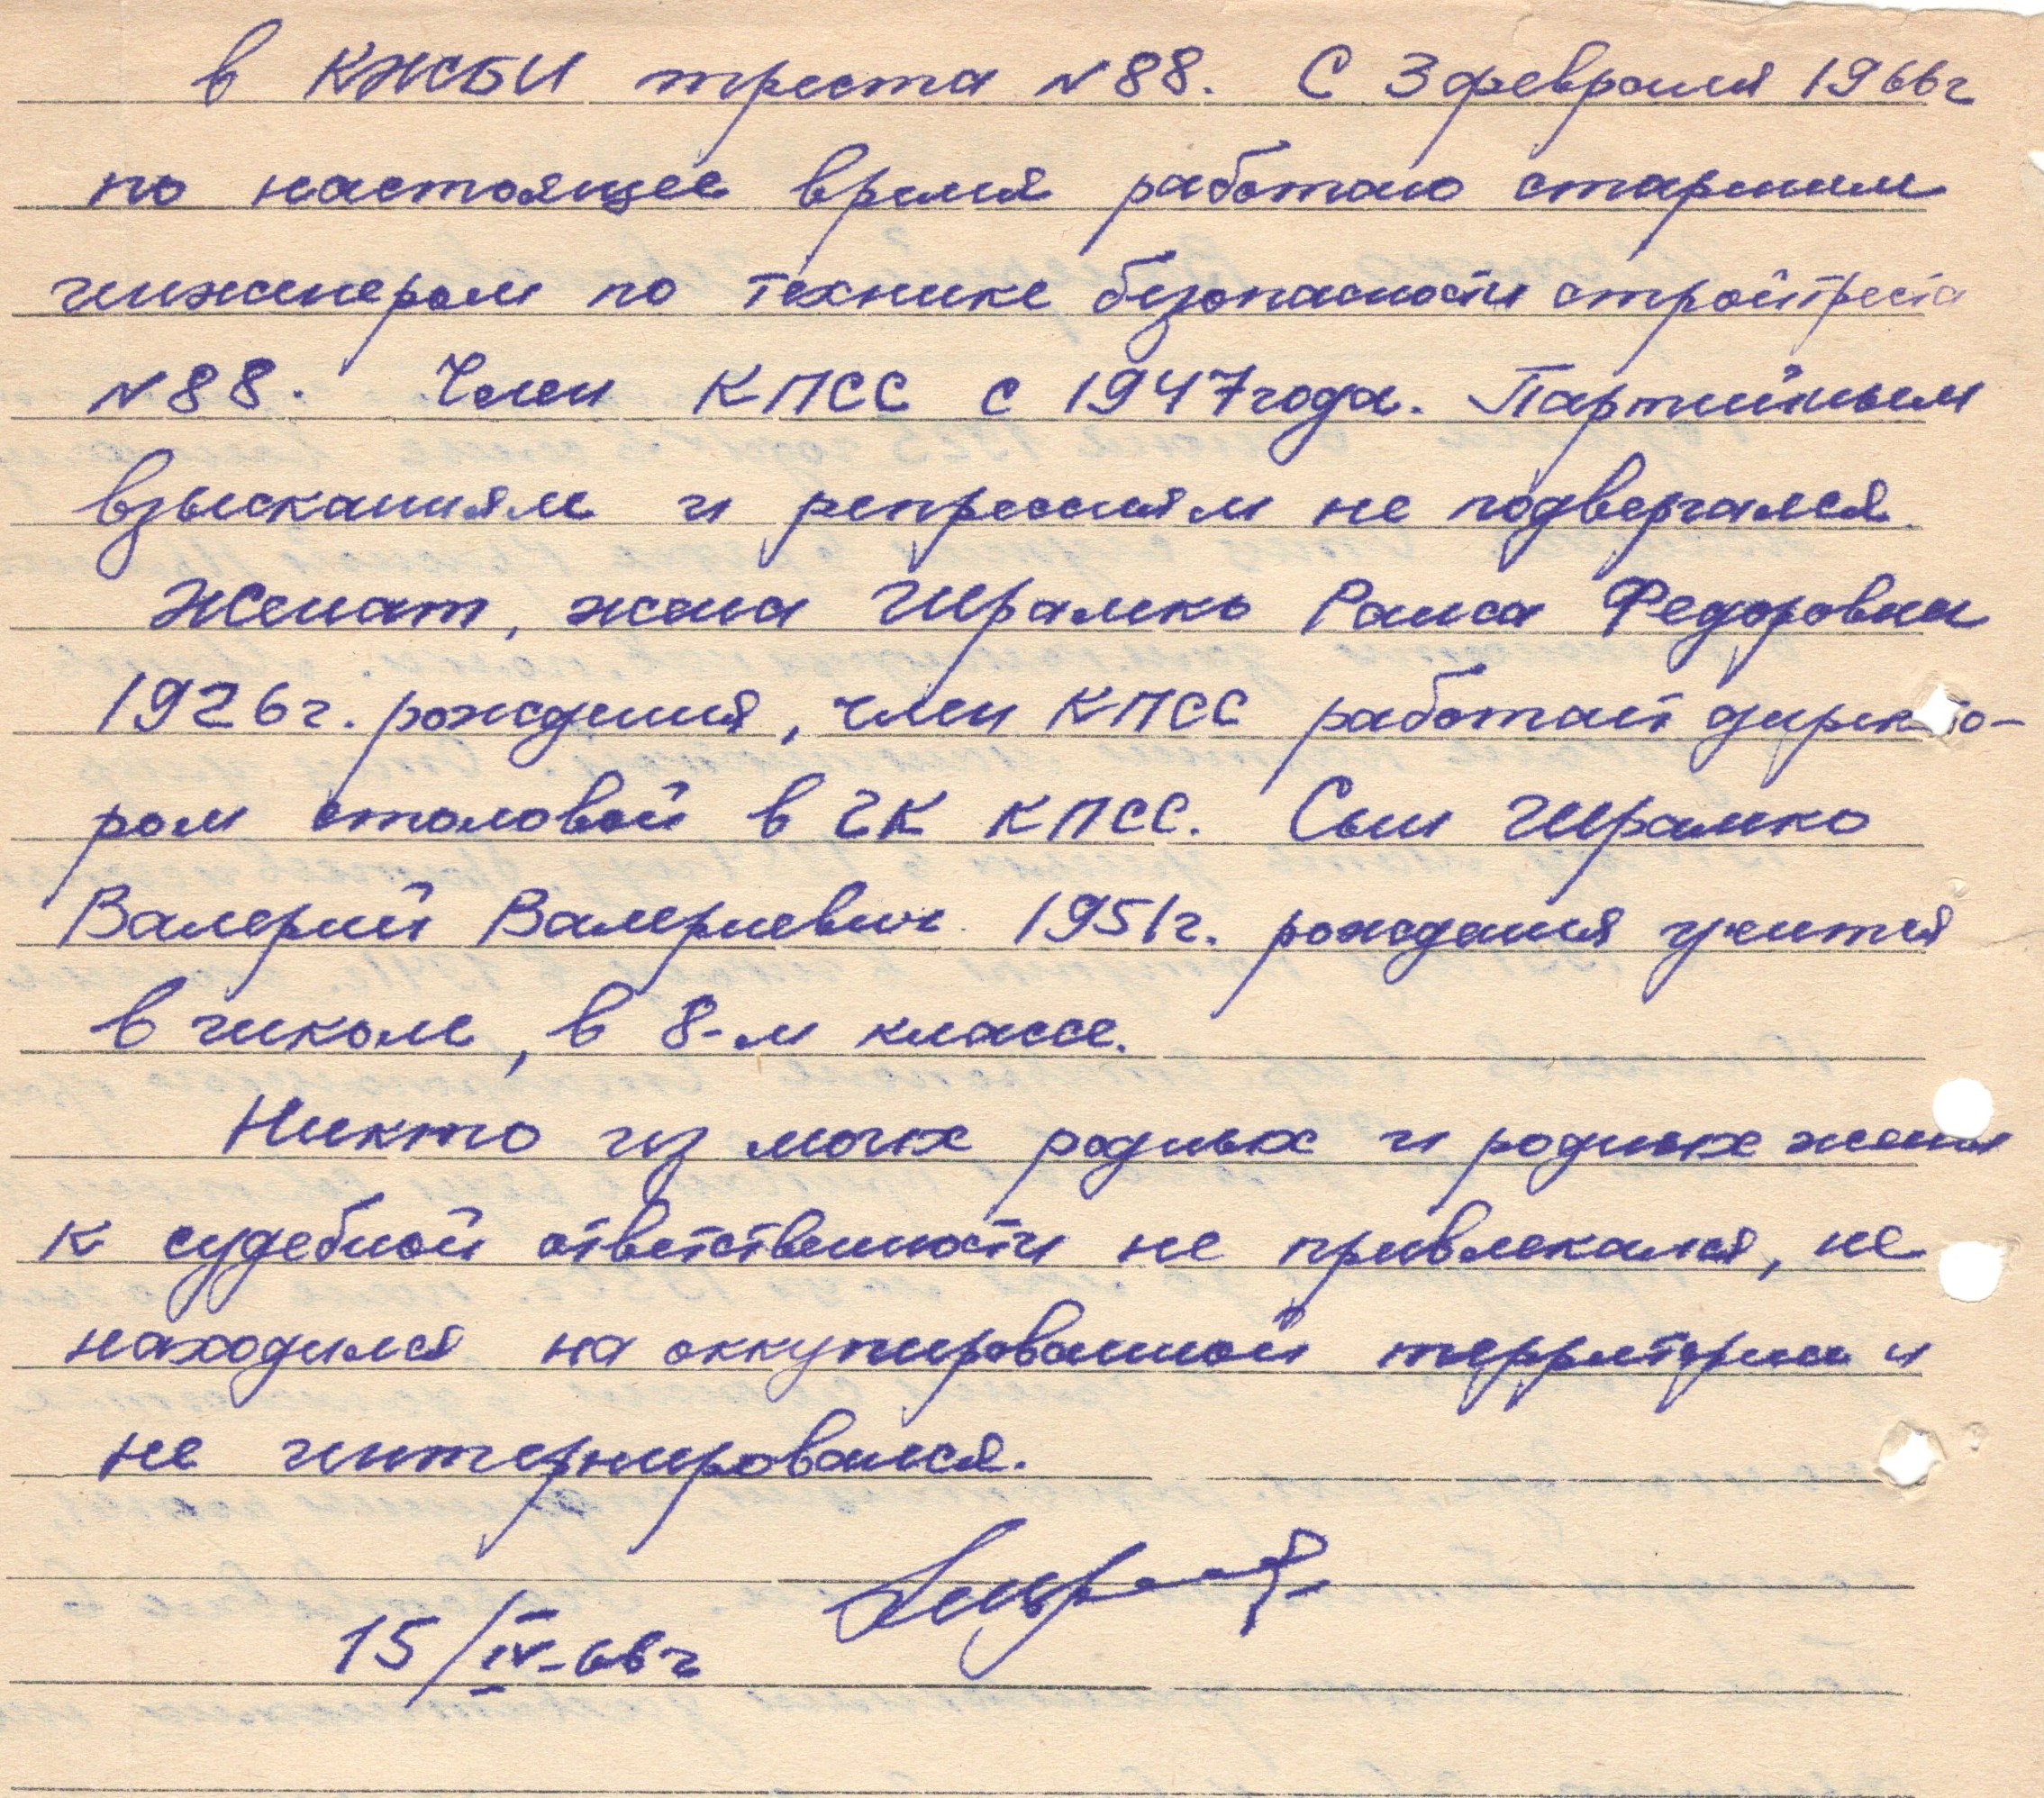 в КЖБИ треста N 88. С 3 февраля 1966г
по настоящее время работаю старшим
инженером по технике безопасности стройтреста
N 88. Член КПСС с 1947 года. Партийным
взысканиям и репрессиям не подвергался.
Женат, жена Шрамко Раиса Федоровна
1926г. рождения, член КПСС работает директо-
ром столовой в ЦК КПСС. Сын Шрамко
Валерий Валериевич 1951г. рождения учится
в школе, в 8-м классе.
Никто из моих родных и родных жены
к судебной ответственности не привлекался, не
находился на оккупированной территории и
не интернировался.
15/IV-66г